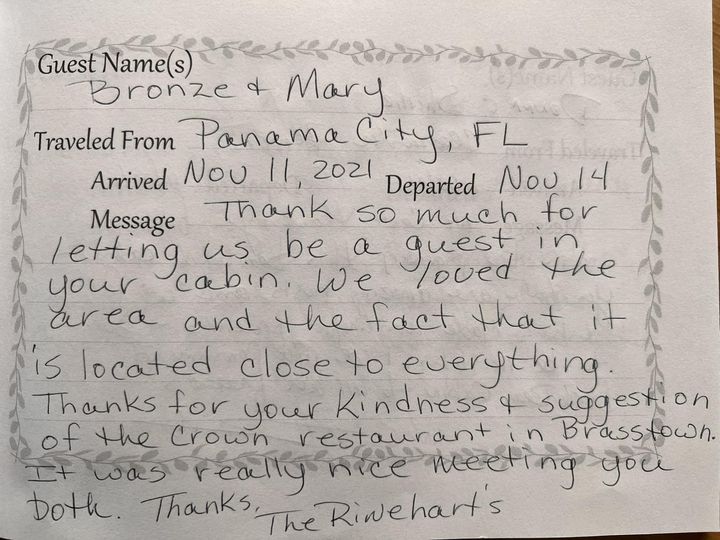 Guest Name(s)
Bronze & Mary
Traveled From Panama City, FL
Arrived Nov 11, 2021 Departed Nov 14
Message Thank so much for
letting us be a guest in
your cabin. We loved the
area and the fact that it
is located close to everything.
Thanks for your kindness & suggestion
of the Crown restaurant in Brasstown.
It was really nice meeting you
both. Thanks, The Rinehart's